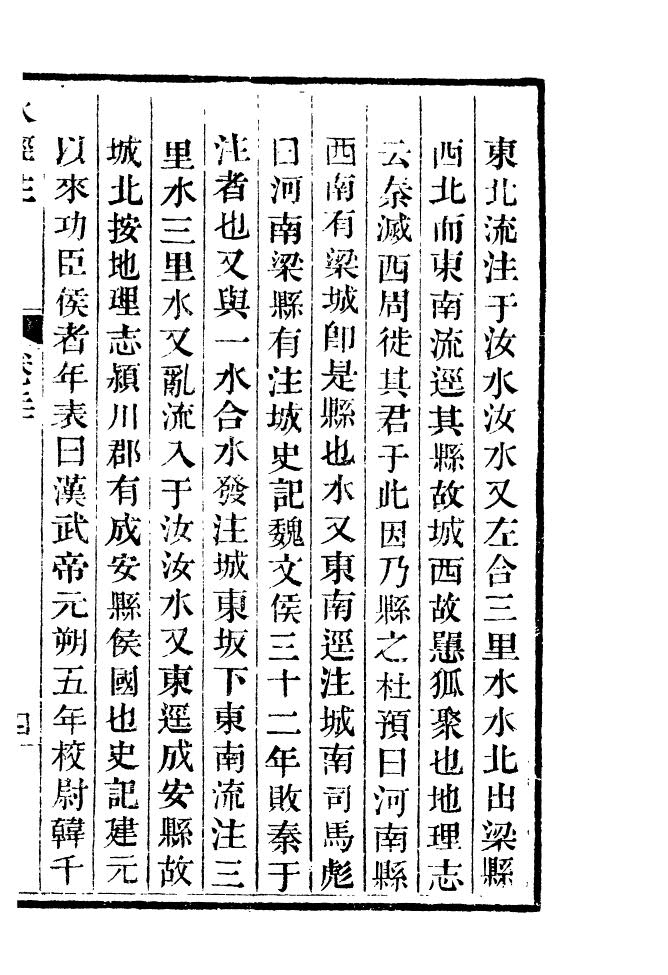 東北流注于汝水汝水又左合三里水水北出梁縣
西北而東南流逕其縣故城西故𢠸狐聚也地理志
云秦滅西周徙其君于此因乃縣之杜預曰河南縣
西南有梁城卽是縣也水又東南逕注城南司馬彪
曰河南梁縣有注城史記魏文侯三十二年敗秦于
注者也又與一水合水發注城東坂下東南流注三
里水三里水又亂流入于汝汝水又東逕成安縣故
城北按地理志潁川郡有成安縣侯國也史記建元
以來功臣侯者年表曰漢武帝元朔五年校尉韓千
水經注
四